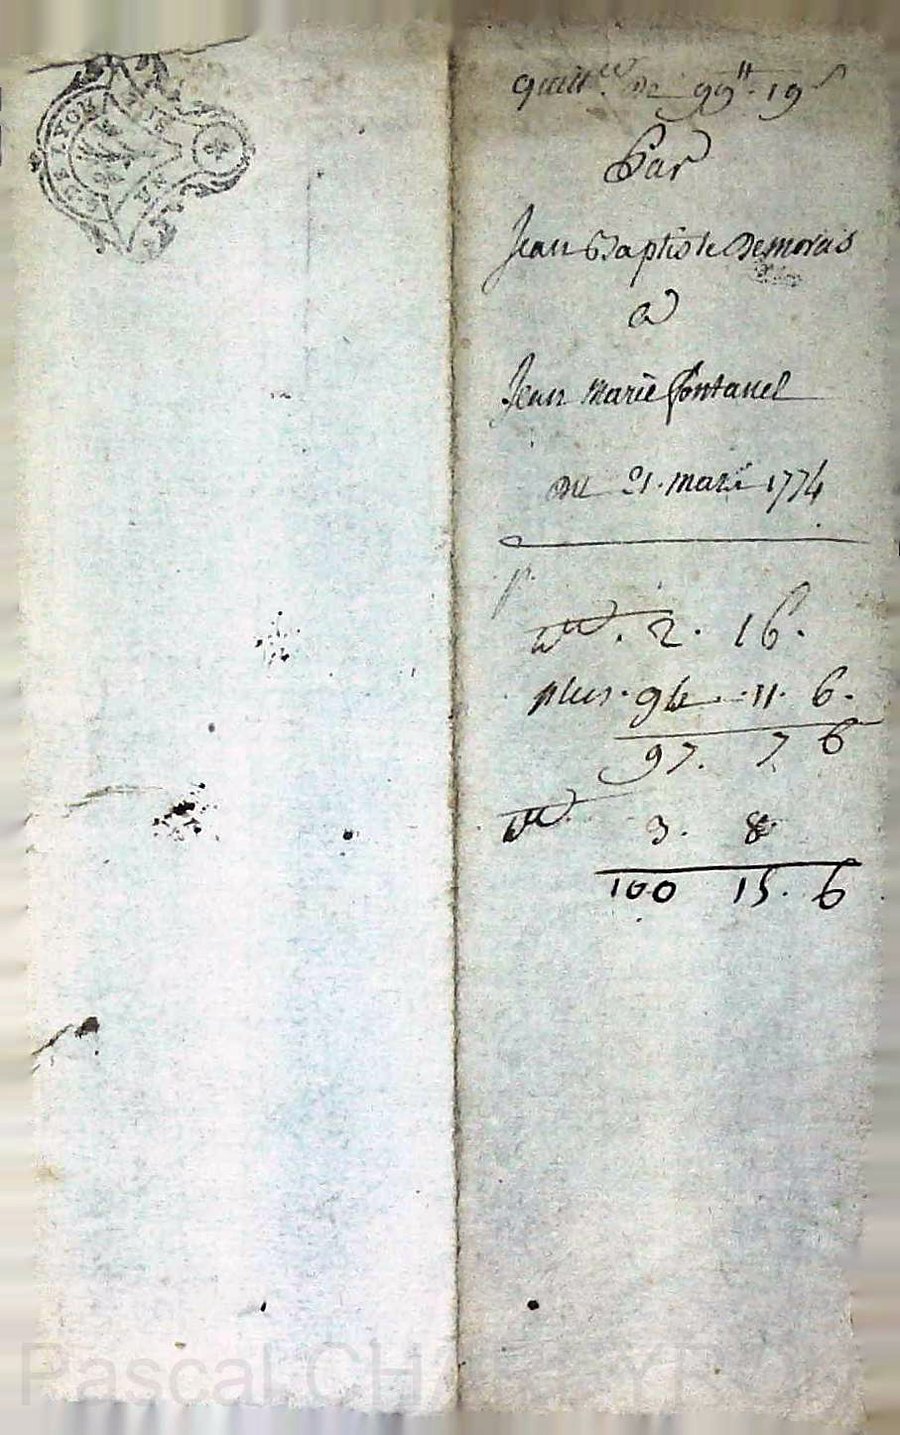 DE LYON
quitt.ce de 99.tt 19 s
Par
Jean Baptiste Demorais
a
Jean Marie fontanel
Du 21. mars 1774
p.
2. 16.
plus. 94. 11. 6.
97. 7 6
3. 8
100 15. 6
Pascal CH